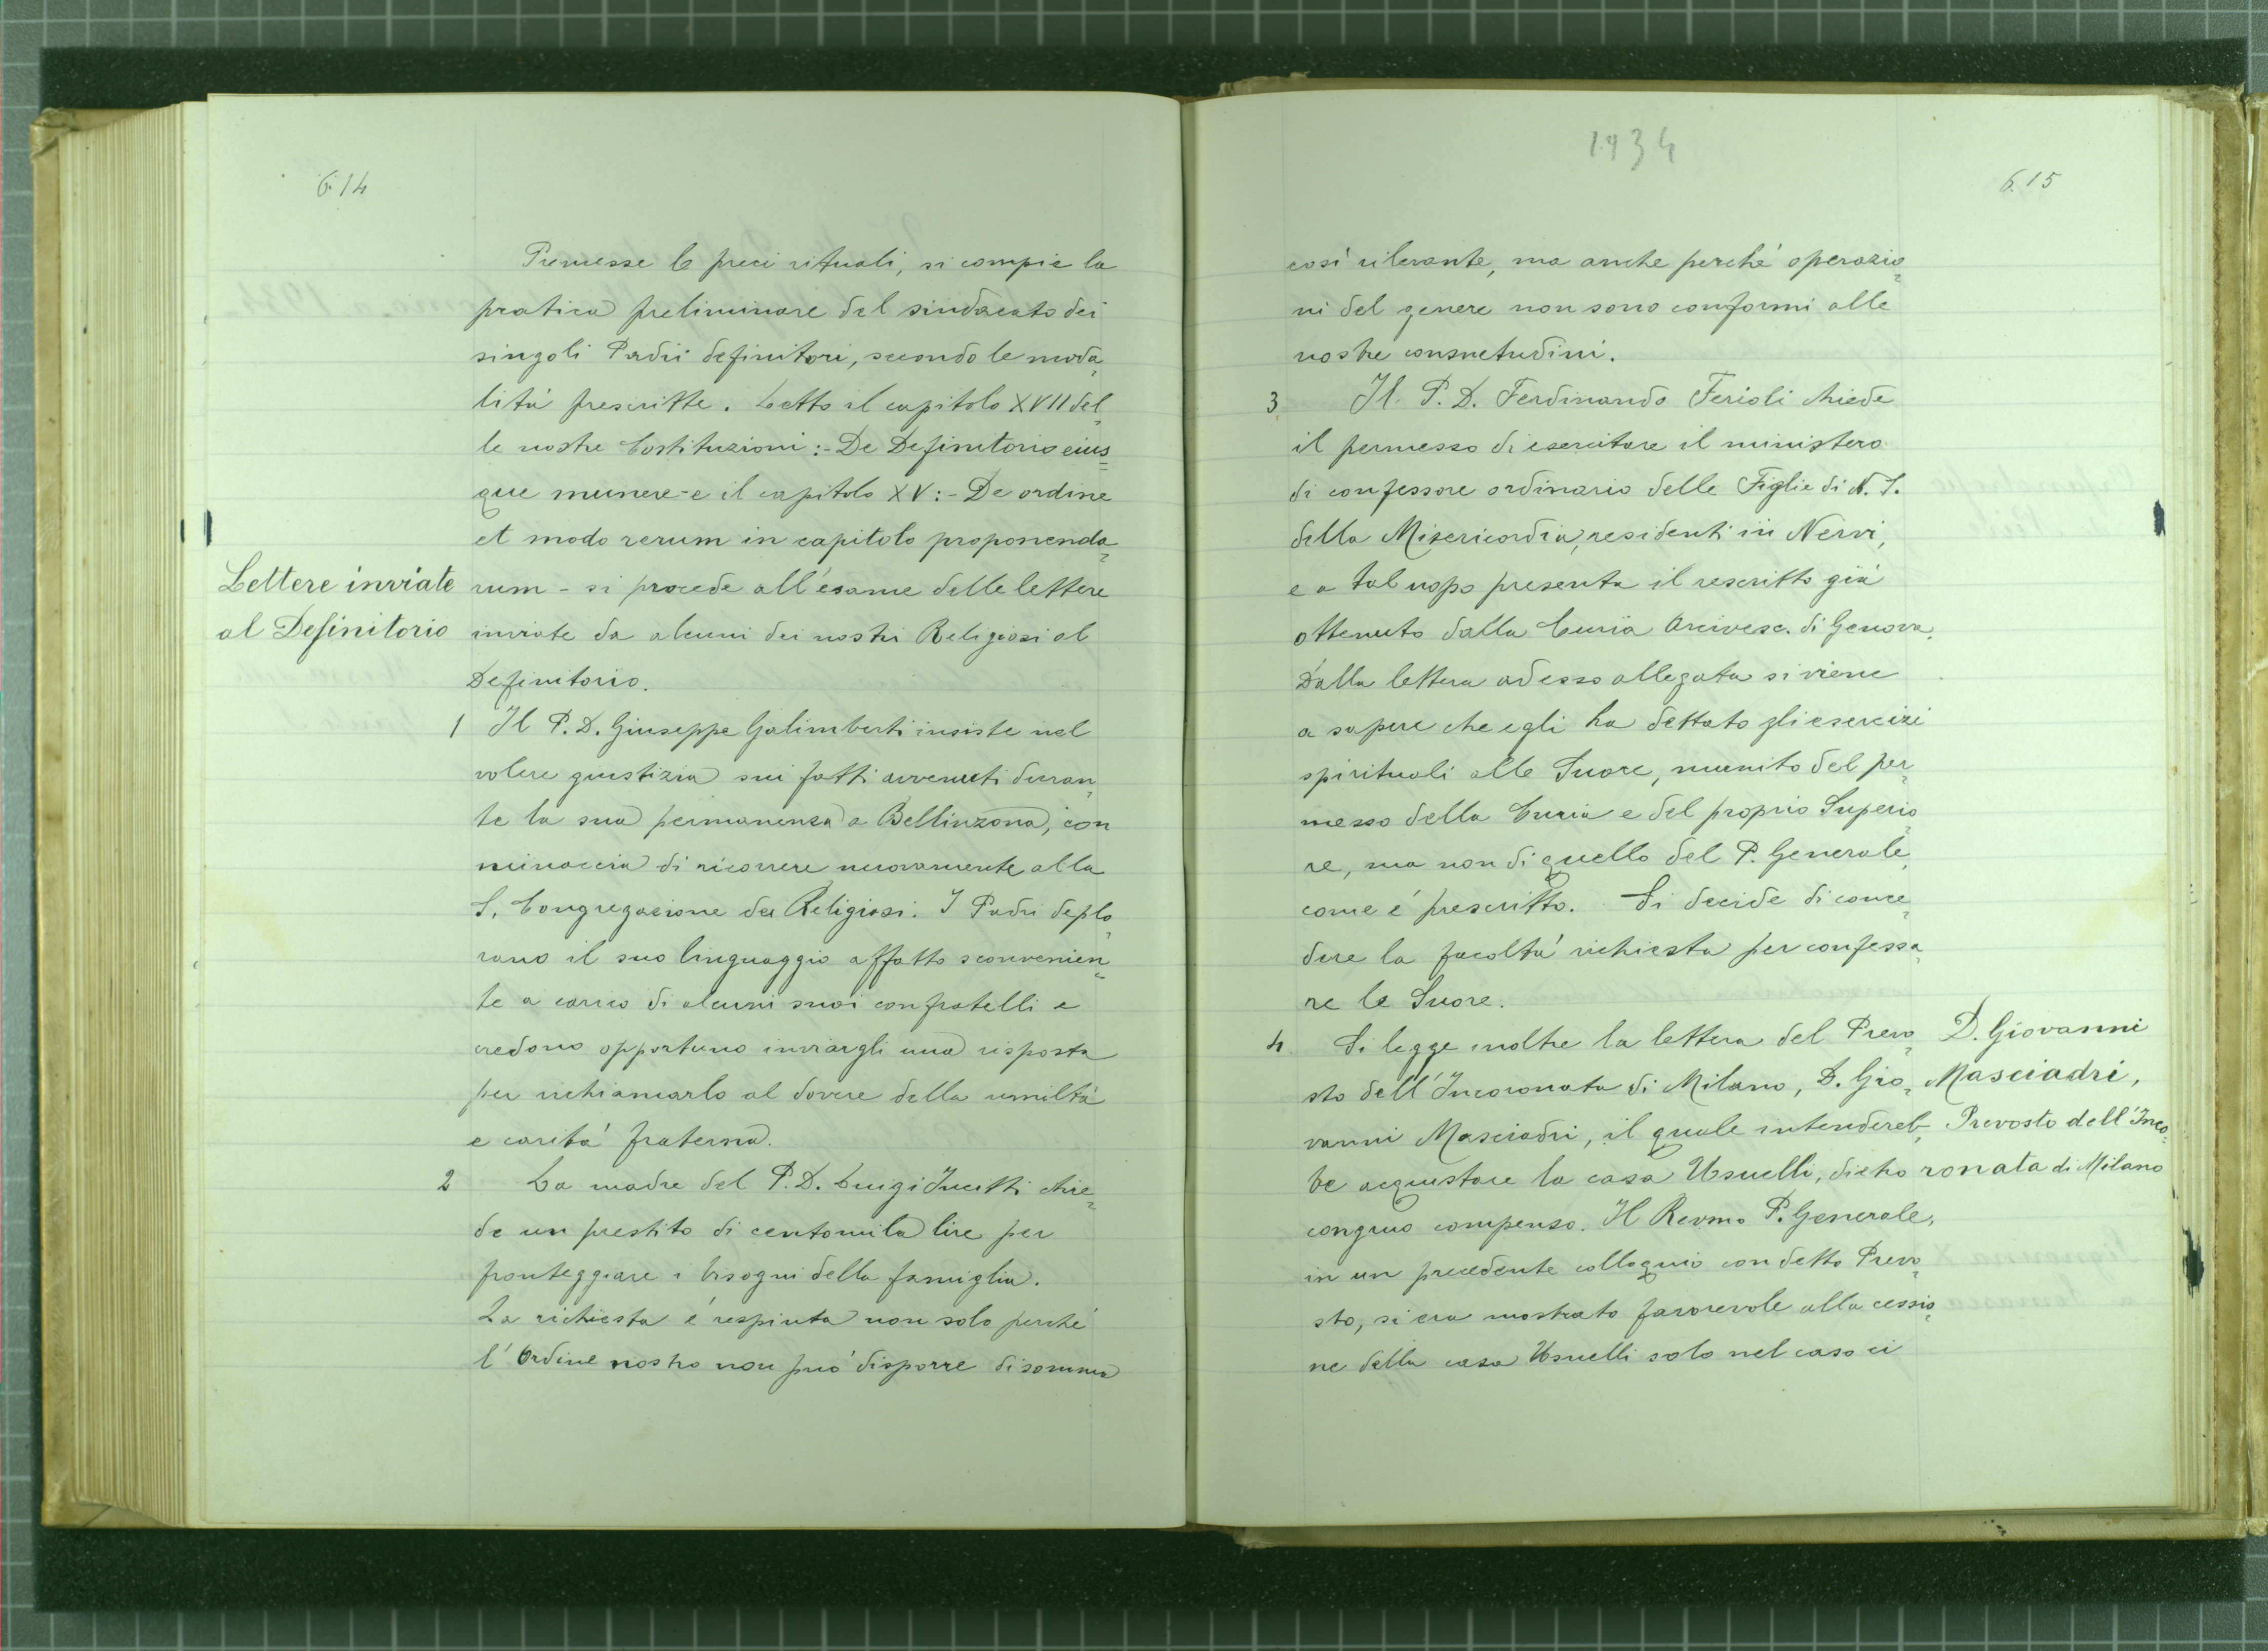 614
Premesse le preci rituali, si compie la
pratica preliminare del sindacato dei
singoli Padri definitori, secondo le moda-
lità prescritte. Letto il capitolo XVII del-
le nostre Costituzioni: - De Definitorio eius=
que munere - e il capitolo XV: - De ordine
et modo rerum in capitolo proponenda-
Lettere inviate
al Definitorio
rum - si procede all'esame delle lettere
inviate da alcuni dei nostri Religiosi al
Definitorio.
1 Il P. D. Giuseppe Galimberti insiste nel
volere giustizia sui fatti avvenuti duran-
te la sua permanenza a Bellinzona, con
minaccia di ricorrere nuovamente alla
S. Congregazione dei Religiosi. I Padri deplo-
rano il suo linguaggio affatto sconvenien-
te a carico di alcuni suoi confratelli e
credono opportuno inviargli una risposta
per richiamarlo al dovere della umiltà
e carità fraterna.
2 La madre del P. D. Luigi Incitti chie-
de un prestito di centomila lire per
fronteggiare i bisogni della famiglia.
La richiesta è respinta non solo perché
l'Ordine nostro non può disporre di somma
1934
615
così rilevante, ma anche perché operazio-
ni del genere non sono conformi alle
nostre consuetudini.
3 Il P. D. Ferdinando Ferioli chiede
il permesso di esercitare il ministero
di confessore ordinario delle Figlie di N. S.
della Misericordia, residenti in Nervi,
e a tal uopo presenta il rescritto già
ottenuto dalla Curia Arcivesc. di Genova.
Dalla lettera ad esso allegata si viene
a sapere che egli ha dettato gli esercizi
spirituali alle Suore, munito del per-
messo della Curia e del proprio Superio-
re, ma non di quello del P. Generale,
come è prescritto. Si decide di conce-
dere la facoltà richiesta per confessa-
re le Suore.
4. Si legge inoltre la lettera del Prevo-
sto dell'Incoronata di Milano, D. Gio-
vanni Masciadri, il quale intendereb-
be acquistare la casa Usuelli, dietro
congruo compenso. Il Revmo P. Generale,
in un precedente colloquio con detto Prevo-
sto, si era mostrato favorevole alla cessio-
ne della casa Usuelli solo nel caso ci
D. Giovanni
Masciadri,
Prevosto dell'Inco-
ronata di Milano